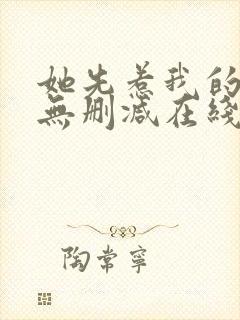 她先惹我的
無删减在綫
陶常寧